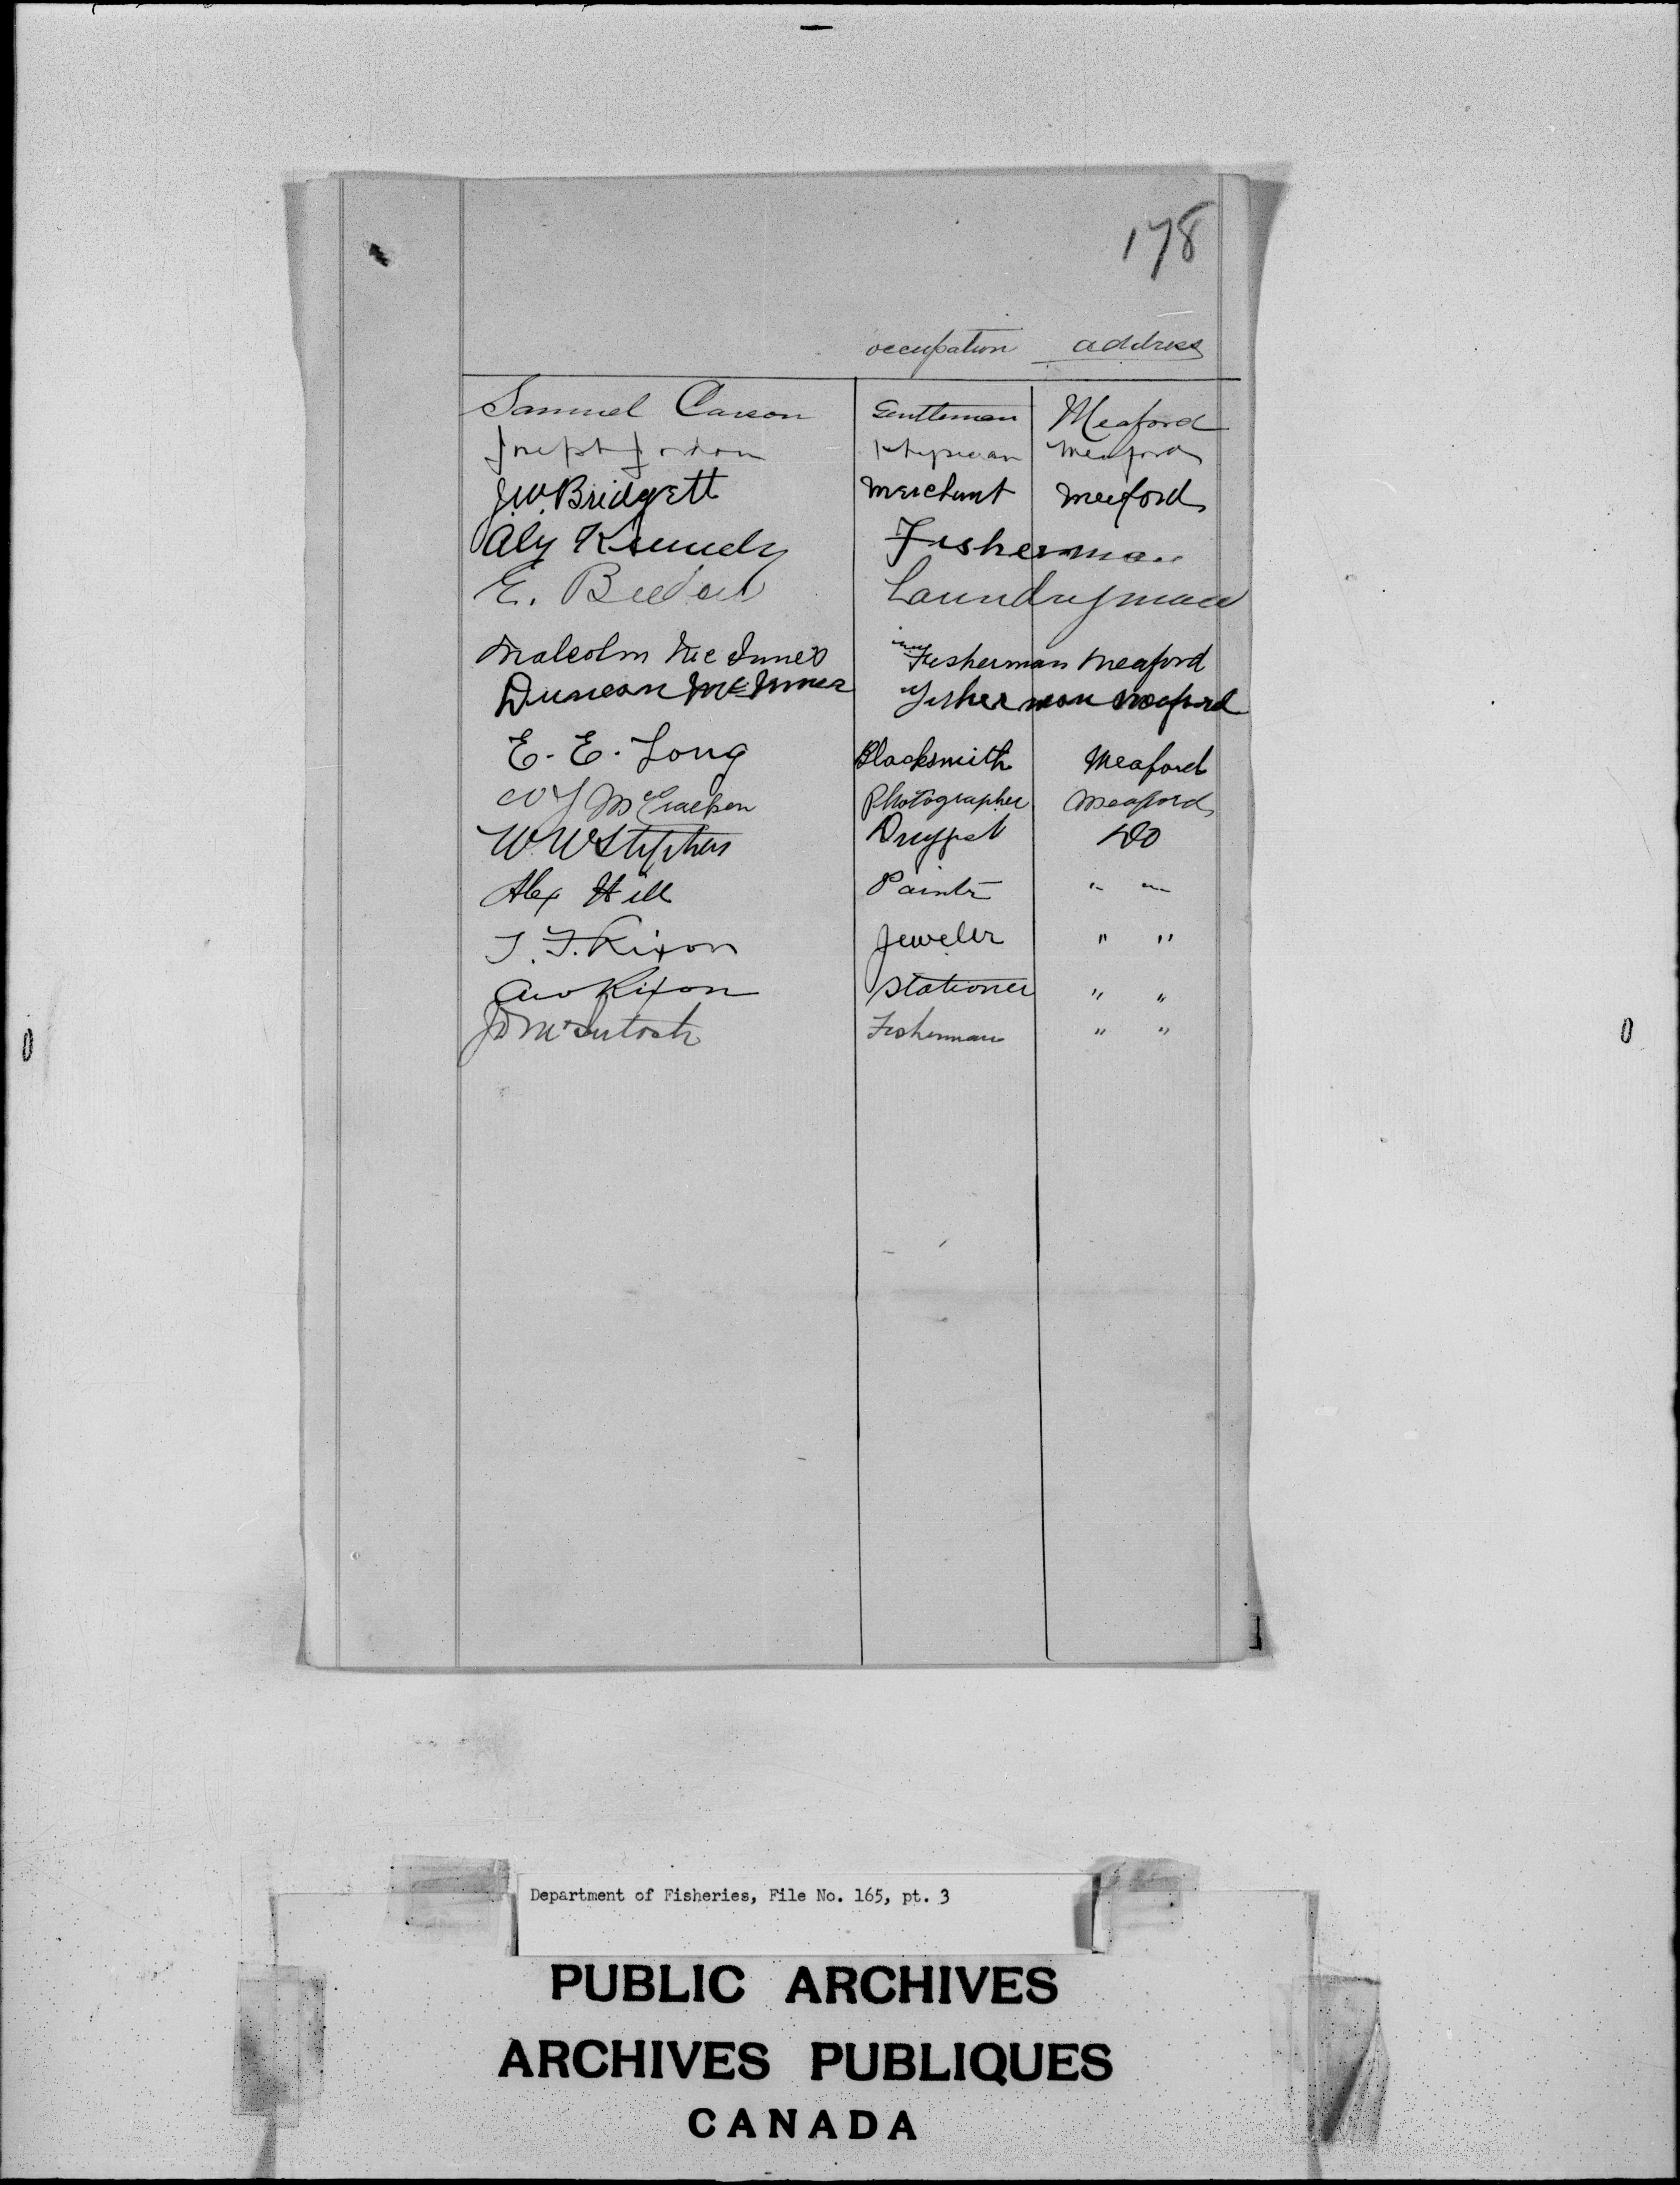 178
occupation address
Samuel Carson Gentleman Meaford
Joseph Jordon Physician Meaford
J.W. Bridgett Merchant Meaford
Alex Kennedy Fisherman
E. Laundryman
Malcolm McInnes Fisherman Meaford
Duncan McInnes Fisherman Meaford
E. E. Long Blacksmith Meaford
W J McCracken Photographer Meaford
W. W Stephens Druggist Do
Alex Hill Painter " "
T. F. Rixon Jeweler " "
Rixon Stationer " "
JD McIntosh Fisherman " "
Department of Fisheries, File No. 165, pt. 3
PUBLIC ARCHIVES
ARCHIVES PUBLIQUES
CANADA